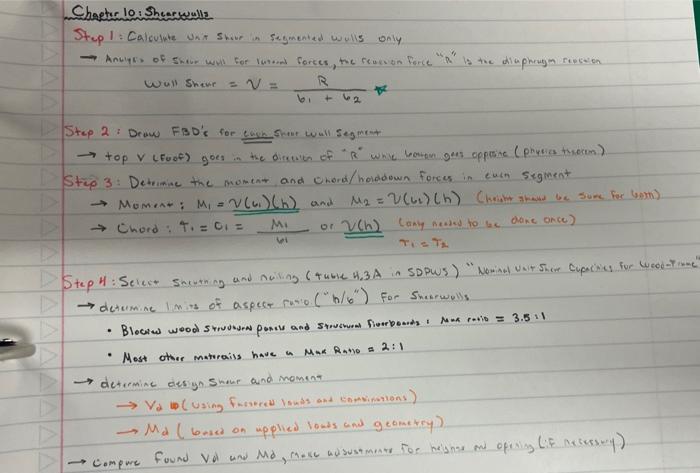 Chapter 10: Shearwalls
Step 1: Calculate Unit Shear in Segmented Walls only
→ Analysis of Shear wall for lateral forces, the reaction force "R" is the diaphragm reaction
Wall Shear = V = R / b1 + b2
Step 2: Draw FBD's for each Shear wall Segment
→ top V (roof) goes in the direction of "R" while bottom goes opposite (physics theorem)
Step 3: Determine the moment and Chord/holddown forces in each Segment
→ Moment: M1 = V(b1)(h) and M2 = V(b2)(h) (height should be same for both)
→ Chord: T1 = C1 = M1 / b1 or V(h) (only needed to be done once)
T1 = T2
Step 4: Select Sheathing and nailing (table 4.3A in SDPWS) "Nominal Unit Shear Capacities for Wood-Frame"
→ determine limits of aspect ratio ("h/b") for Shearwalls
• Blocked wood structural panels and Structural fiberboards: Max ratio = 3.5:1
• Most other materails have a Max Ratio = 2:1
→ determine design shear and moment
→ Vd (using factored loads and combinations)
→ Md (based on applied loads and geometry)
→ Compare found Vd and Md, make adjustments for heights and opening (if necessary)